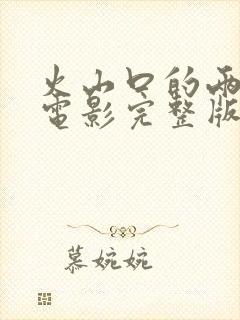 火山口的两
电影完整版
慕婉婉